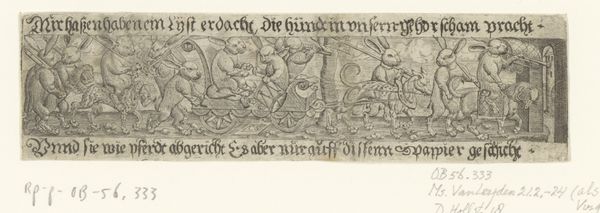 Mir haßen haben ein Lÿst erdacht, die hünd in vnsern gehorscham pracht
Vnnd sie wie pferde abgericht Es aber nur auff dissenn Pappier geschicht
RP-P-OB-56.333
OB 56.333
Ms. Van Leyden 212,-24 (als
D. Hollst. 48